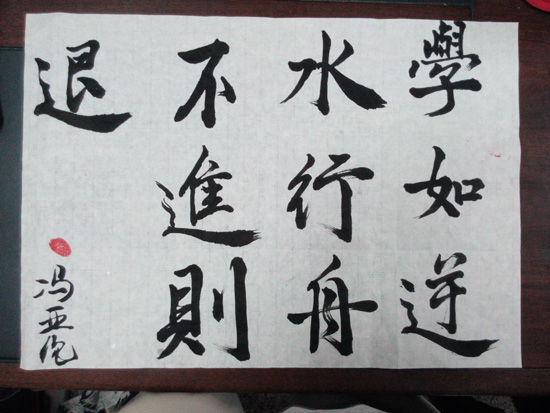 學如逆
水行舟
不進則
退
冯亚伦